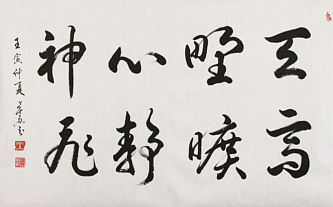 天高
野曠
心静
神飛
壬寅仲夏